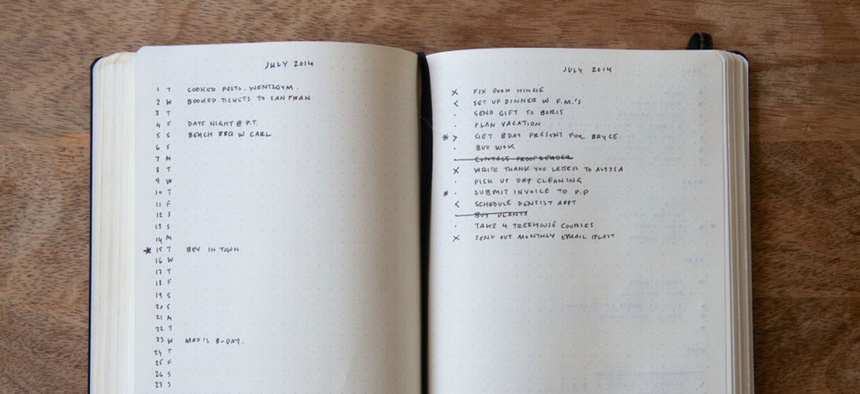 JULY 2014
1 T COOKED PESTO. WENT 2 GYM.
2 W BOOKED TICKETS TO SAN FRAN
3 T
4 F DATE NIGHT @ P.T.
5 S BEACH BBQ W CARL
6 S
7 M
8 T
9 W
10 T
11 F
12 S
13 S
14 M
* 15 T BEV IN TOWN
16 W
17 T
18 F
19 S
20 S
21 M
22 T
23 W MAX'S B-DAY.
24 T
25 F
26 S
27 S
JULY 2014
X FIX DOOR HINGE
< SET UP DINNER W F.M.'S
· SEND GIFT TO BORIS
· PLAN VACATION
* > GET BDAY PRESENT FOR BRYCE
· BUY WOK
· CONTACT PROOFREADER
X WRITE THANK YOU LETTER TO ALYSSA
· PICK UP DRY CLEANING
* · SUBMIT INVOICE TO P.P
< SCHEDULE DENTIST APPT
· BUY PLANTS
· TAKE 4 TREEHOUSE COURSES
X SEND OUT MONTHLY EMAIL BLAST